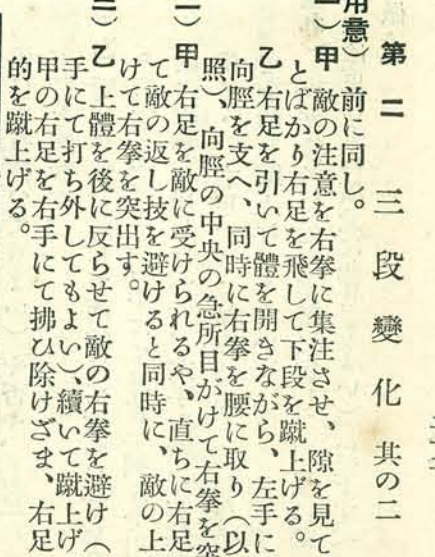 第二 三段變化 其の二
用意)前に同し。
一)甲 敵の注意を右拳に集注させ、隙を見て
とばかり右足を飛して下段を蹴上げる。
乙 右足を引いて體を開きながら、左手に
向脛を支へ、同時に右拳を腰に取り(以
照)、向脛の中央の急所目がけて右拳を突
二)甲 右足を敵に受けられるや、直ちに右足
て敵の返し技を避けると同時に、敵の上
けて右拳を突出す。
三)乙 上體を後に反らせて敵の右拳を避け(
手にて打ち外してもよい)、續いて蹴上げ
甲の右足を右手にて拂ひ除けざま、右足
的を蹴上げる。